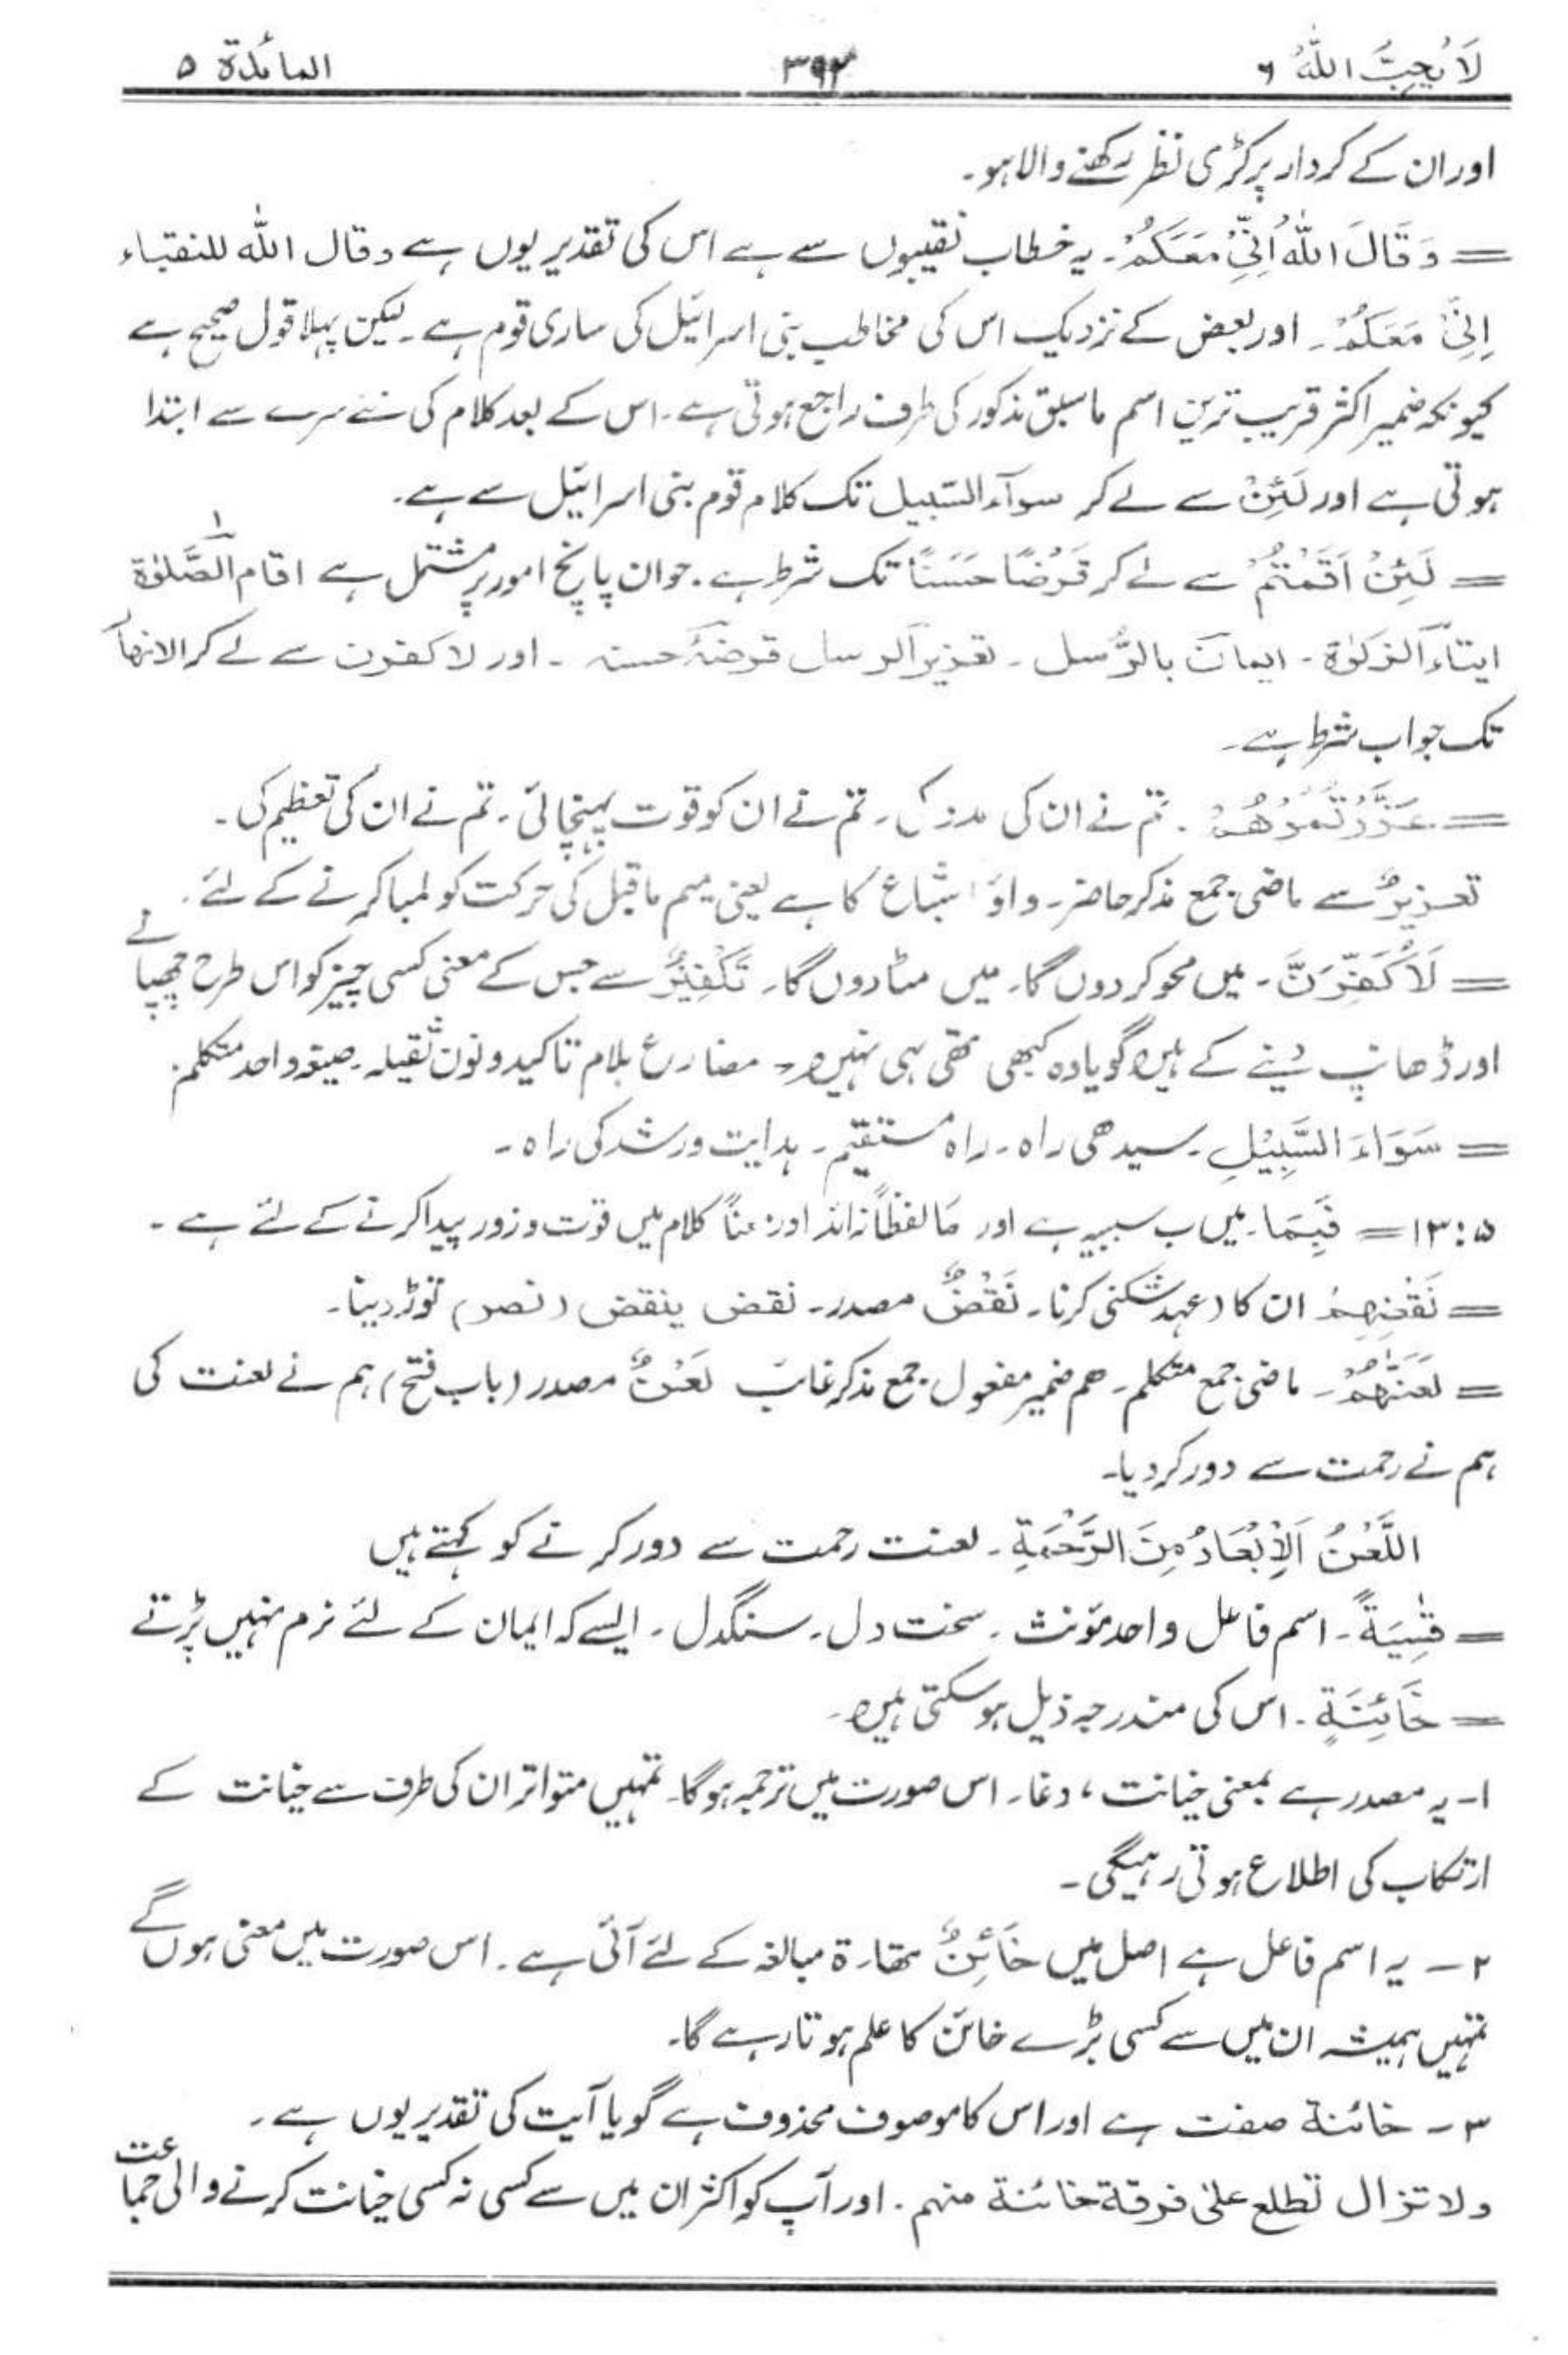 لَا یُحِبُّ اللّٰہُ ۶ ۳۹۲ المائدۃ ۵
اور ان کے کردار پر کڑی نظر رکھنے والا ہو۔
= وَقَالَ اللّٰہُ اِنِّیْ مَعَکُمْ۔ یہ خطاب نقیبوں سے ہے اس کی تقدیر یوں ہے وقال اللّٰہ للنقباء
اِنِّیْ مَعَکُمْ۔ اور بعض کے نزدیک اس کی مخاطب بنی اسرائیل کی ساری قوم ہے۔ لیکن پہلا قول صحیح ہے
کیونکہ ضمیر اکثر قریب ترین اسم ماسبق مذکور کی طرف راجع ہوتی ہے۔ اس کے بعد کلام کی نئے سرے سے ابتدا
ہوتی ہے اور لَئِنْ سے لے کر سوآء السّبیل تک کلام قوم بنی اسرائیل سے ہے۔
= لَئِنْ اَقَمْتُمْ سے لے کر قَرْضًا حَسَنًا تک شرط ہے۔ جو ان پانچ امور پر مشتمل ہے ۱ اقام الصَّلوٰۃ
ایتآء الزکوٰۃ۔ ایمان بالرُّسل۔ تعزیر الرسل قرضۂ حسنہ۔ اور لاکفرن سے لے کر الانھٰر
تک جواب شرط ہے۔
= عَزَّرْتُمُوْھُمْ۔ تم نے ان کی مدد کی۔ تم نے ان کو قوت پہنچائی۔ تم نے ان کی تعظیم کی۔
تعزیرٌ سے ماضی جمع مذکر حاضر۔ واؤ اشباع کا ہے یعنی میم ماقبل کی حرکت کو لمبا کرنے کے لئے۔
= لَاُکَفِّرَنَّ۔ میں محو کر دوں گا۔ میں مٹا دوں گا۔ تَکْفِیْرٌ سے جس کے معنی کسی چیز کو اس طرح چھپانے
اور ڈھانپ دینے کے ہیں گویا وہ کبھی تھی ہی نہیں۔ مضارع بلام تاکید و نون ثقیلہ۔ صیغہ واحد متکلم۔
= سَوَاءَ السَّبِیْلِ۔ سیدھی راہ۔ راہ مستقیم۔ ہدایت و رشد کی راہ۔
۵:۱۳ = فَبِمَا۔ میں ب سببیہ ہے اور مَا لفظًا زائد اور معنًا کلام میں قوت و زور پیدا کرنے کے لئے ہے۔
= نَقْضِھِمْ ان کا (عہد شکنی کرنا۔ نَقْضٌ مصدر۔ نقض ینقض (نصر) توڑ دینا۔
= لَعَنّٰھُمْ۔ ماضی جمع متکلم۔ ھم ضمیر مفعول جمع مذکر غائب لَعْنٌ مصدر (باب فتح) ہم نے لعنت کی
ہم نے رحمت سے دور کر دیا۔
اللَّعْنُ اَلْاِبْعَادُ مِنَ الرَّحْمَةِ۔ لعنت رحمت سے دور کرنے کو کہتے ہیں
= قٰسِیَةً۔ اسم فاعل واحد مؤنث۔ سخت دل۔ سنگدل۔ ایسے کہ ایمان کے لئے نرم نہیں پڑتے
= خَائِنَةٍ۔ اس کی مندرجہ ذیل ہو سکتی ہیں۔
۱۔ یہ مصدر ہے بمعنی خیانت، دغا۔ اس صورت میں ترجمہ ہوگا۔ تمہیں متواتر ان کی طرف سے خیانت کے
ارتکاب کی اطلاع ہوتی رہیگی۔
۲۔ یہ اسم فاعل ہے اصل میں خَائِنٌ تھا۔ ۃ مبالغہ کے لئے آئی ہے۔ اس صورت میں معنی ہوں گے
تمہیں ہمیشہ ان میں سے کسی بڑے خائن کا علم ہوتا رہے گا۔
۳۔ خائنة صفت ہے اور اس کا موصوف محذوف ہے گویا آیت کی تقدیر یوں ہے۔
ولا تزال تطلع علیٰ فرقة خائنة منہم۔ اور آپ کو اکثر ان میں سے کسی نہ کسی خیانت کرنے والی جماعت